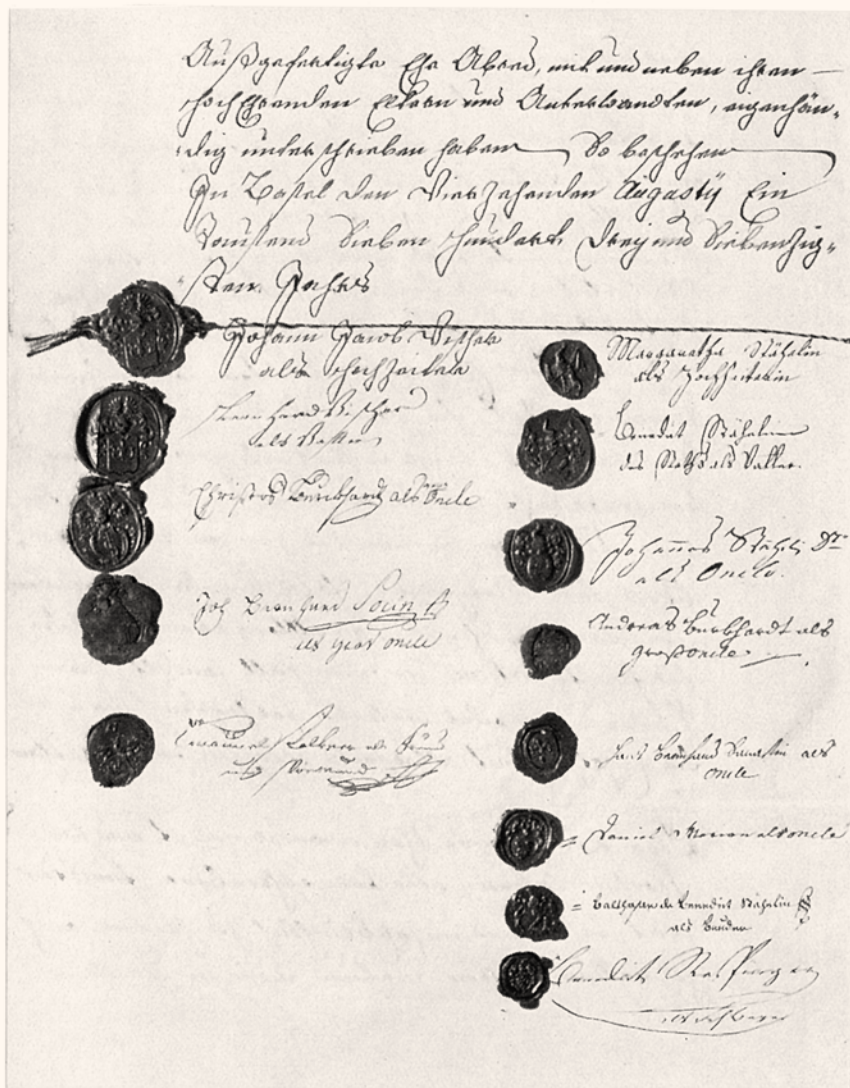 Außgefertigte Ehe Abred, mit und neben ihren
hochEhrenden Eltern und Anverwandten, eigenhän-
dig unterschrieben haben So beschehen
In Basel den Vierzehenden Augustÿ Ein
Tausend Sieben Hundert Dreÿ und Siebenzig-
sten Jahrs
Johann Jacob Vischer
als Hochzeiter
Leonhard Vischer
als Vatter
Burckhardt als Oncle
Joh Bernhard Socin
als gros oncle
Emanuel Falkner als
Margaretha Stähelin
als Hochzeiterin
Benedict Stähelin
des Raths als Vatter.
Johannes Stäheli Dr
als Oncle.
Andreas Burckhardt als
großoncle
Hans Bernhard Sarasin als
oncle
Daniel Merian als oncle
Balthasar de Benedict Stähelin
als Bruder
Benedict
als Schwager